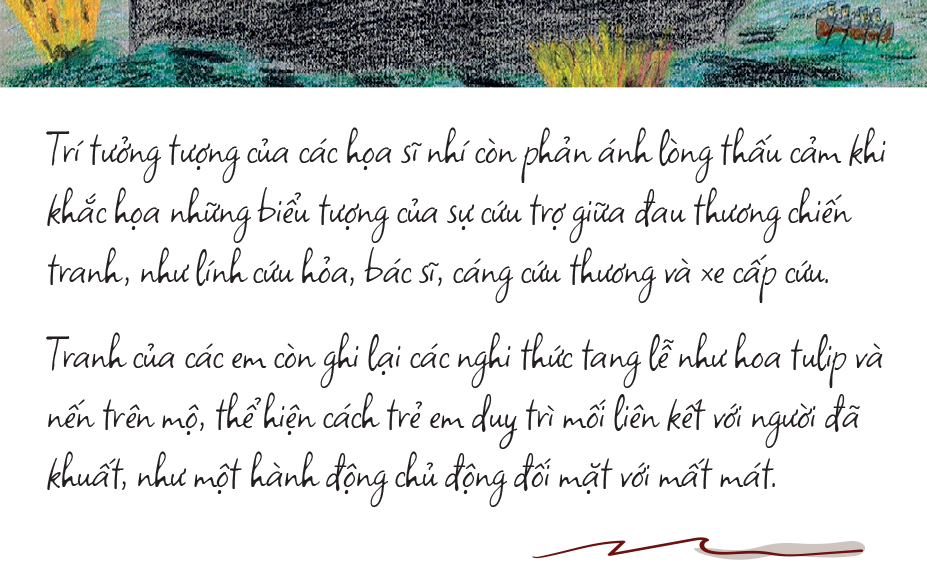 Trí tưởng tượng của các họa sĩ nhí còn phản ánh lòng thấu cảm khi
khắc họa những biểu tượng của sự cứu trợ giữa đau thương chiến
tranh, như lính cứu hỏa, bác sĩ, cáng cứu thương và xe cấp cứu.
Tranh của các em còn ghi lại các nghi thức tang lễ như hoa tulip và
nến trên mộ, thể hiện cách trẻ em duy trì mối liên kết với người đã
khuất, như một hành động chủ động đối mặt với mất mát.